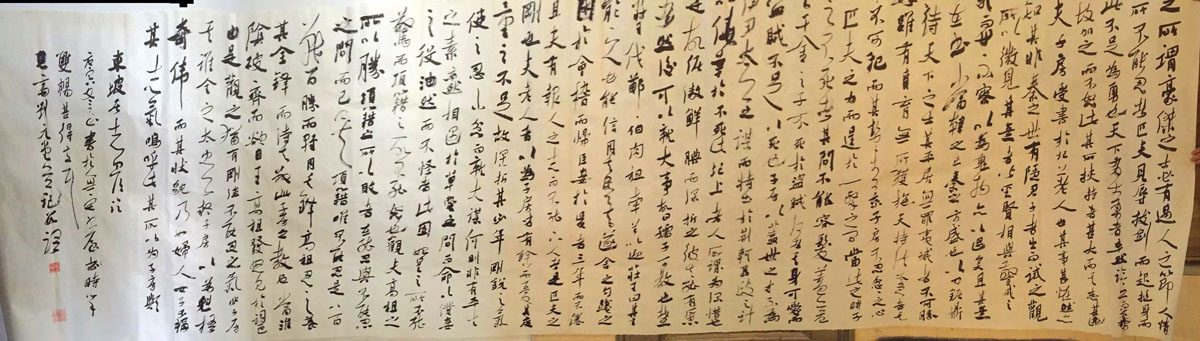 之所謂豪傑之士必有過人之節人情
有所不能忍者匹夫見辱拔劍而起挺身而
此不足為勇也天下有大勇者卒然臨之而不驚
故加之而不怒此其所挾持者甚大而其志甚遠
夫子房受書於圯上老人也其事甚怪然亦
知其非秦之世有隱君子者出而試之觀
其所以微見其意者皆聖賢相與警戒之
而世不察以為鬼物亦已過矣且其意
不在書當韓之亡秦之方盛也以刀鋸鼎
待天下之士其平居無罪夷滅者不可勝
數雖有賁育無所獲施夫持法太急者其
不可犯而其勢未可乘子房不忍忿之心
以匹夫之力而逞於一擊之間當此之時子
之不死者其間不能容髮蓋亦危
千金之子不死於盜賊何者其身可愛
盜賊不足以死也子房以蓋世之才不為
伊尹太公之謀而特出於荊軻聶政之計
以僥幸於不死此圯上老人所謂深惜也
是故倨傲鮮腆而深折之彼其能有所
忍也然後可以就大事故曰孺子可教也楚
莊王伐鄭鄭伯肉袒牽羊以逆莊王曰其君
能下人必能信用其民矣遂舍之勾踐之
困於會稽而歸臣妾於吳者三年而不倦
且夫有報人之志而不能下人者是匹夫之
剛也夫老人者以為子房才有餘而憂其度
量之不足故深折其少年剛銳之氣
使之忍小忿而就大謀何則非有平生
之素卒然相遇於草野之間而命以僕妾
之役油然而不怪者此固秦皇之所不能
驚而項籍之所不能怒也觀夫高祖之
所以勝項籍之所以敗者在能忍與不能忍
之間而已矣項籍唯不能忍是以百
戰百勝而輕用其鋒高祖忍之養
其全鋒而待其敝此子房教之也當淮
陰破齊而欲自王高祖發怒見於詞色
由是觀之猶有剛強不能忍之氣非子房
其誰全之太史公疑子房以為魁梧
奇偉而其狀貌乃如婦人女子不稱
其志氣嗚呼此其所以為子房歟
東坡居士留侯論